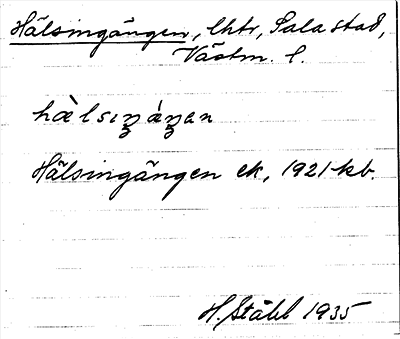 Hälsingängen, lhtr, Sala stad,
Västm. l.
hàlsiŋáŋen
Hälsingängen ek, 1921 kb.
H. Ståhl 1935